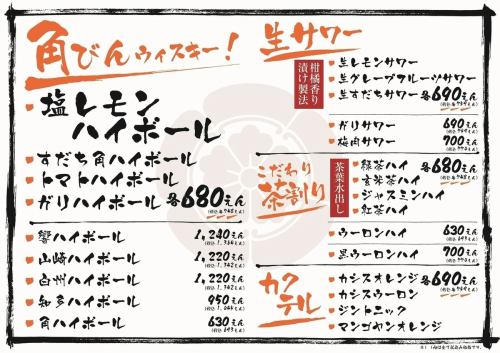 角びんウィスキー！
塩レモン
ハイボール
すだち角ハイボール
トマトハイボール
ガリハイボール 各680えん
(税込 各748えん)
響ハイボール 1,240えん
(税込 1,364えん)
山崎ハイボール 1,220えん
(税込 1,342えん)
白州ハイボール 1,220えん
(税込 1,342えん)
知多ハイボール 950えん
(税込 1,045えん)
角ハイボール 630えん
(税込 693えん)
生サワー
柑橘香り
漬け製法
生レモンサワー
生グレープフルーツサワー
生すだちサワー 各690えん
ガリサワー 690えん
梅肉サワー 700えん
こだわり
茶割り
茶葉水出し
緑茶ハイ 各680えん
(税込 各748えん)
玄米茶ハイ
ジャスミンハイ
紅茶ハイ
ウーロンハイ 630えん
(税込 693えん)
黒ウーロンハイ 700えん
カク
テル
カシスオレンジ 各690えん
カシスウーロン
ジントニック
マンゴヤンオレンジ